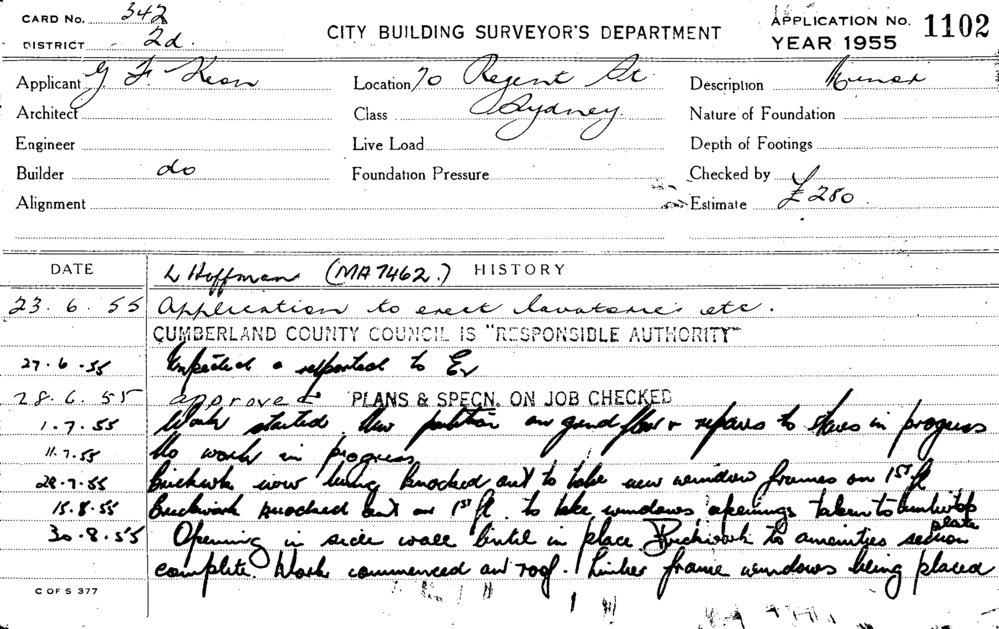 CARD No. 342
DISTRICT 2d.
CITY BUILDING SURVEYOR'S DEPARTMENT
APPLICATION No. 1102
YEAR 1955
Applicant G F Keon
Location 70 Regent St
Description
Architect
Class Sydney
Nature of Foundation
Engineer
Live Load
Depth of Footings
Builder do
Foundation Pressure
Checked by
Alignment
Estimate £280
DATE L Hoffman (MA7462.) HISTORY
23.6.55 Application to erect lavatories etc.
CUMBERLAND COUNTY COUNCIL IS "RESPONSIBLE AUTHORITY"
27.6.55 Inspected & reported to
28.6.55 approved PLANS & SPECN. ON JOB CHECKED
1.7.55 Work started New partition on grnd floor & repairs to in progress
11.7.55 No work in progress
29.7.55 Brickwk now being knocked out to take new window frames on 1st fl
15.8.55 Brickwork knocked out on 1st fl. to take windows openings taken to
plate
30.8.55 Opening in side wall lintel in place. Brickwork to amenities section
complete. Work commenced on roof. Timber frame windows being placed
C OF S 377